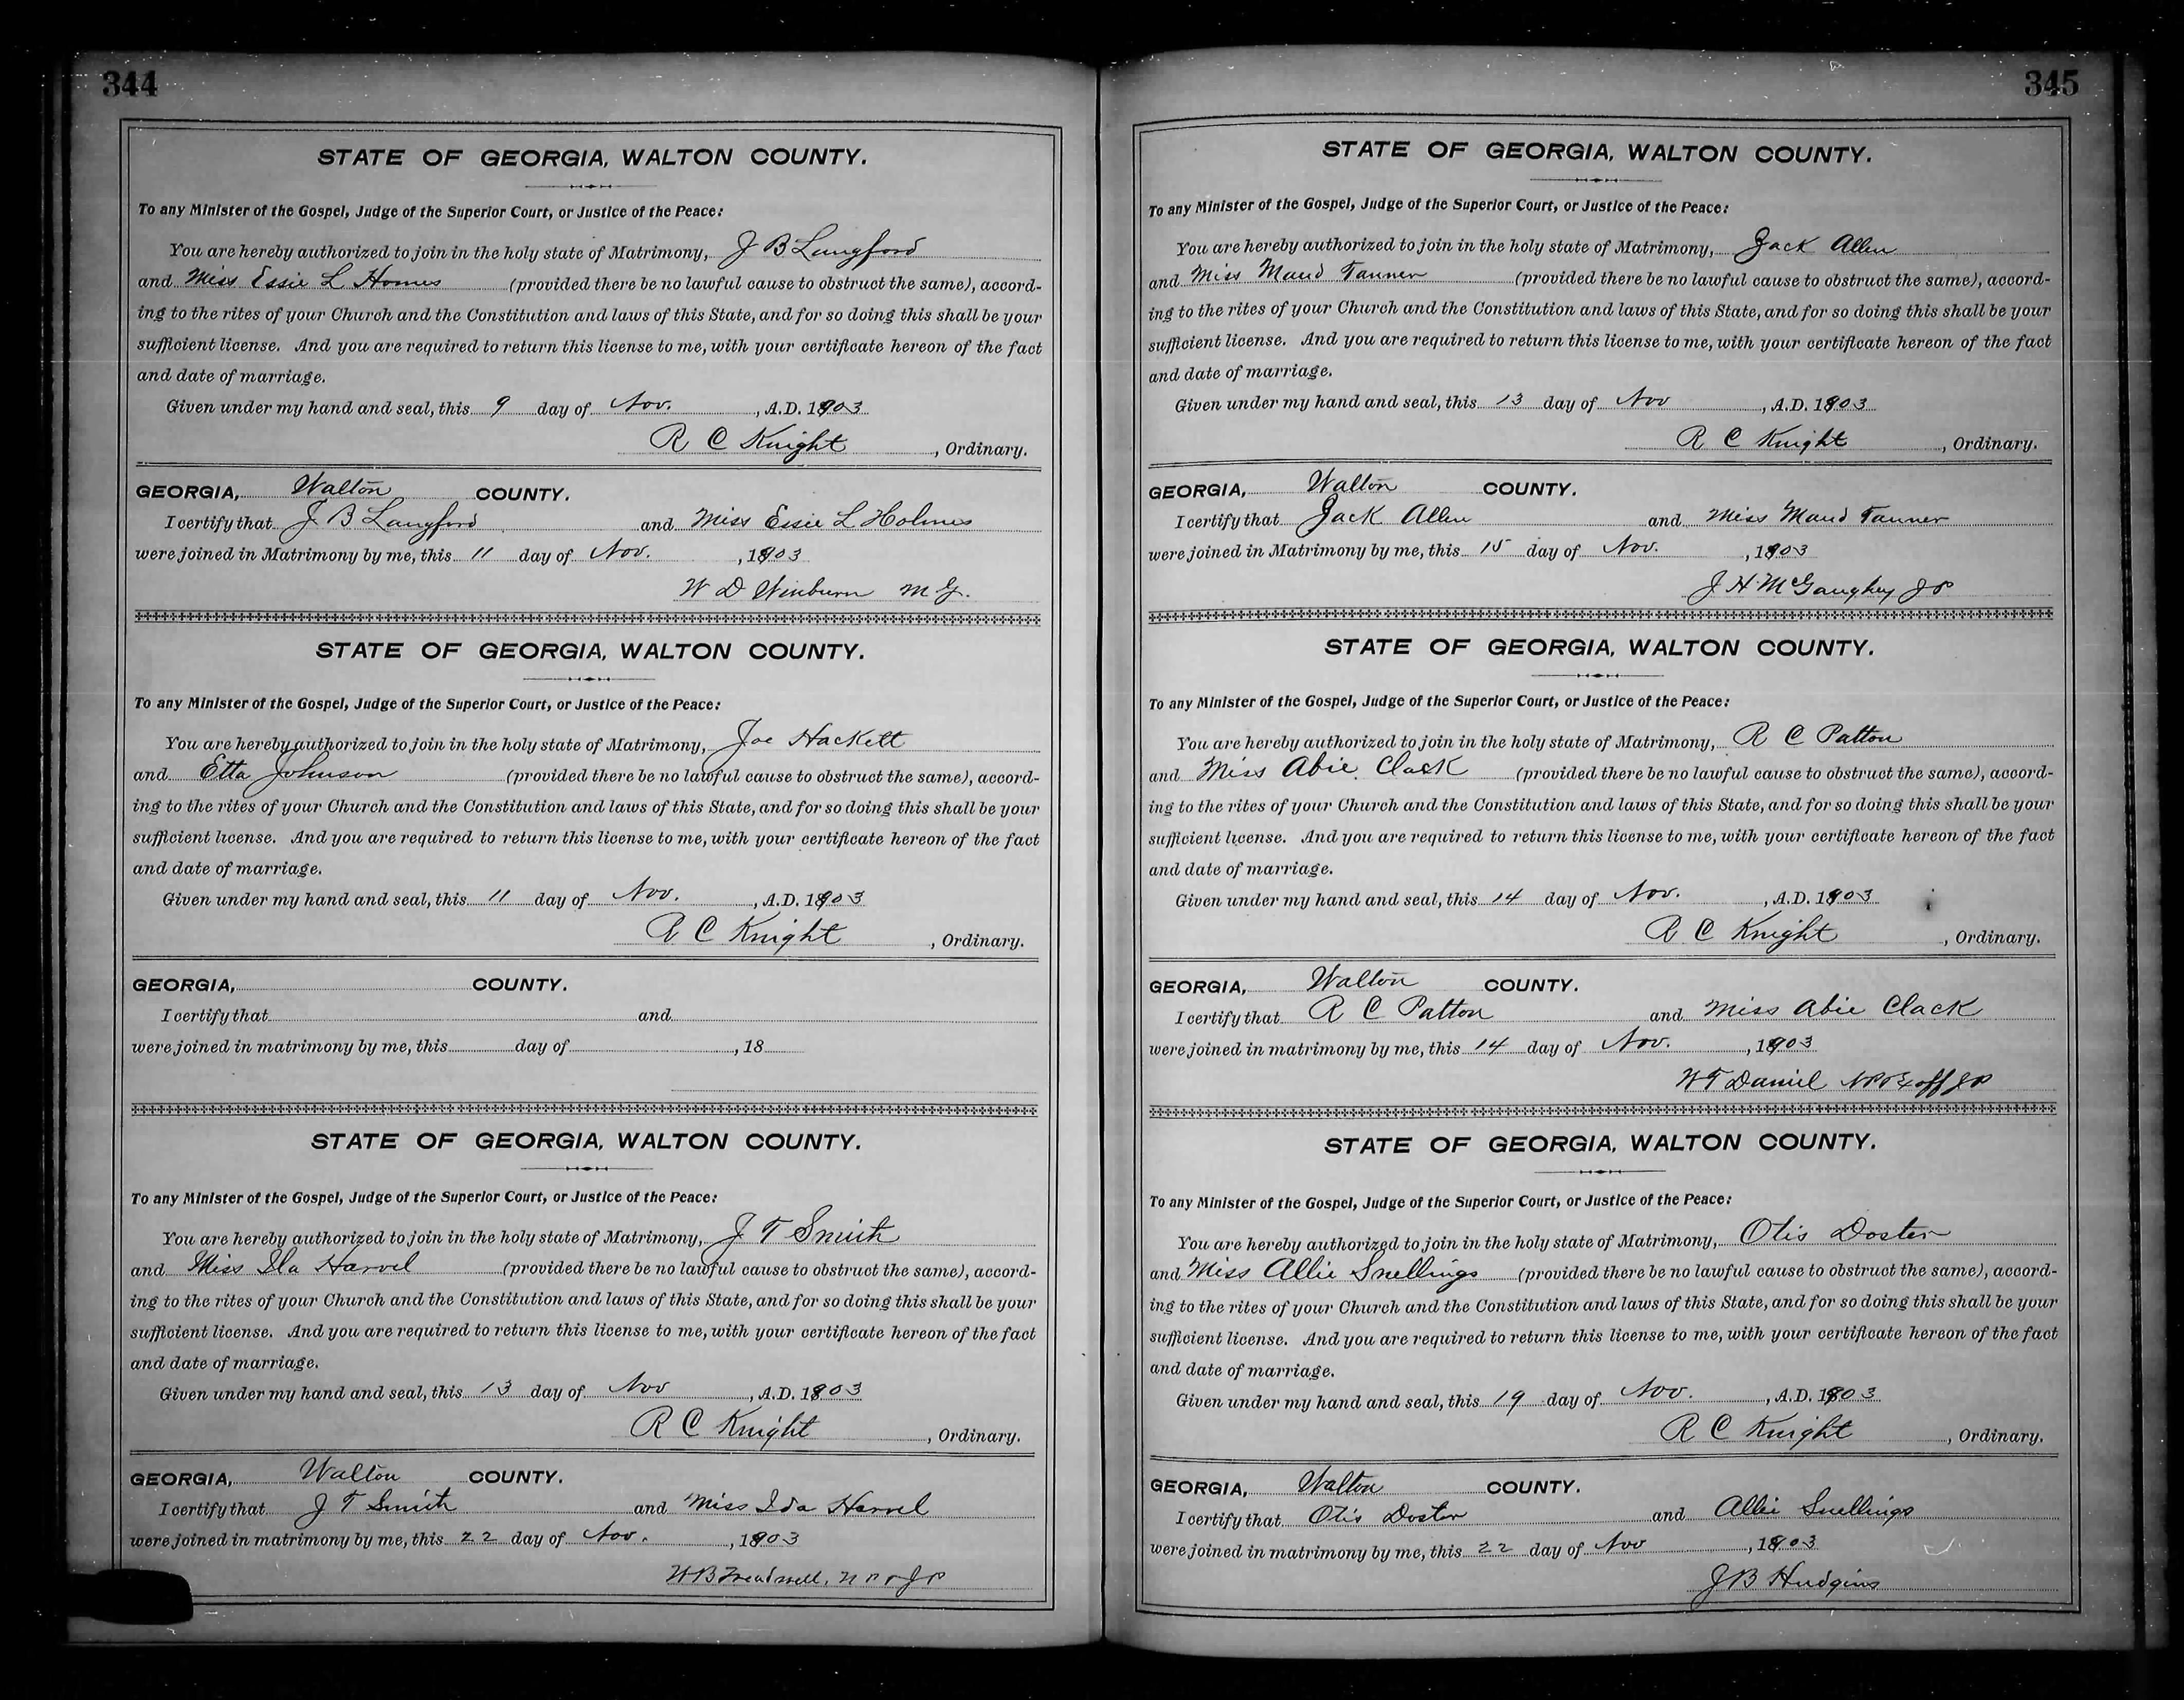 344
STATE OF GEORGIA, WALTON COUNTY.
To any Minister of the Gospel, Judge of the Superior Court, or Justice of the Peace:
You are hereby authorized to join in the holy state of Matrimony, J B Langford
and Miss Essie L Homes (provided there be no lawful cause to obstruct the same), accord-
ing to the rites of your Church and the Constitution and laws of this State, and for so doing this shall be your
sufficient license. And you are required to return this license to me, with your certificate hereon of the fact
and date of marriage.
Given under my hand and seal, this 9 day of Nov. , A.D. 1903
R C Knight , Ordinary.
GEORGIA, Walton COUNTY.
I certify that J B Langford and Miss Essie L Holmes
were joined in Matrimony by me, this 11 day of Nov. , 1903
W D Winburn M G.
STATE OF GEORGIA, WALTON COUNTY.
To any Minister of the Gospel, Judge of the Superior Court, or Justice of the Peace:
You are hereby authorized to join in the holy state of Matrimony, Joe Hackett
and Etta Johnson (provided there be no lawful cause to obstruct the same), accord-
ing to the rites of your Church and the Constitution and laws of this State, and for so doing this shall be your
sufficient license. And you are required to return this license to me, with your certificate hereon of the fact
and date of marriage.
Given under my hand and seal, this 11 day of Nov. , A.D. 1903
R C Knight , Ordinary.
GEORGIA, COUNTY.
I certify that and
were joined in matrimony by me, this day of , 18
STATE OF GEORGIA, WALTON COUNTY.
To any Minister of the Gospel, Judge of the Superior Court, or Justice of the Peace:
You are hereby authorized to join in the holy state of Matrimony, J T Smith
and Miss Ila Harvel (provided there be no lawful cause to obstruct the same), accord-
ing to the rites of your Church and the Constitution and laws of this State, and for so doing this shall be your
sufficient license. And you are required to return this license to me, with your certificate hereon of the fact
and date of marriage.
Given under my hand and seal, this 13 day of Nov , A.D. 1903
R C Knight , Ordinary.
GEORGIA, Walton COUNTY.
I certify that J T Smith and Miss Ida Harvel
were joined in matrimony by me, this 22 day of Nov. , 1903
W B Treadwell, N P & J P
345
STATE OF GEORGIA, WALTON COUNTY.
To any Minister of the Gospel, Judge of the Superior Court, or Justice of the Peace:
You are hereby authorized to join in the holy state of Matrimony, Jack Allen
and Miss Maud Tanner (provided there be no lawful cause to obstruct the same), accord-
ing to the rites of your Church and the Constitution and laws of this State, and for so doing this shall be your
sufficient license. And you are required to return this license to me, with your certificate hereon of the fact
and date of marriage.
Given under my hand and seal, this 13 day of Nov , A.D. 1903
R C Knight , Ordinary.
GEORGIA, Walton COUNTY.
I certify that Jack Allen and Miss Maud Tanner
were joined in Matrimony by me, this 15 day of Nov. , 1903
J H McGaughey J P
STATE OF GEORGIA, WALTON COUNTY.
To any Minister of the Gospel, Judge of the Superior Court, or Justice of the Peace:
You are hereby authorized to join in the holy state of Matrimony, R C Patton
and Miss Abie Clack (provided there be no lawful cause to obstruct the same), accord-
ing to the rites of your Church and the Constitution and laws of this State, and for so doing this shall be your
sufficient license. And you are required to return this license to me, with your certificate hereon of the fact
and date of marriage.
Given under my hand and seal, this 14 day of Nov. , A.D. 1903
R C Knight , Ordinary.
GEORGIA, Walton COUNTY.
I certify that R C Patton and Miss Abie Clack
were joined in matrimony by me, this 14 day of Nov. , 1903
W T Daniel N P & Ex off J P
STATE OF GEORGIA, WALTON COUNTY.
To any Minister of the Gospel, Judge of the Superior Court, or Justice of the Peace:
You are hereby authorized to join in the holy state of Matrimony, Otis Doster
and Miss Allie Snellings (provided there be no lawful cause to obstruct the same), accord-
ing to the rites of your Church and the Constitution and laws of this State, and for so doing this shall be your
sufficient license. And you are required to return this license to me, with your certificate hereon of the fact
and date of marriage.
Given under my hand and seal, this 19 day of Nov. , A.D. 1903
R C Knight , Ordinary.
GEORGIA, Walton COUNTY.
I certify that Otis Doster and Allie Snellings
were joined in matrimony by me, this 22 day of Nov , 1903
J B Hudgins